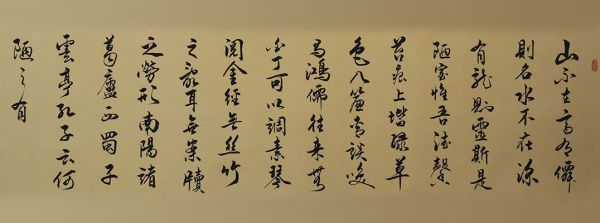 山不在高有僊
則名水不在深
有龍則靈斯是
陋室惟吾德馨
苔痕上堦綠草
色入簾青談笑
有鴻儒往来無
白丁可以調素琴
閱金經無絲竹
之亂耳無案牘
之勞形南陽諸
葛廬西蜀子
雲亭孔子云何
陋之有